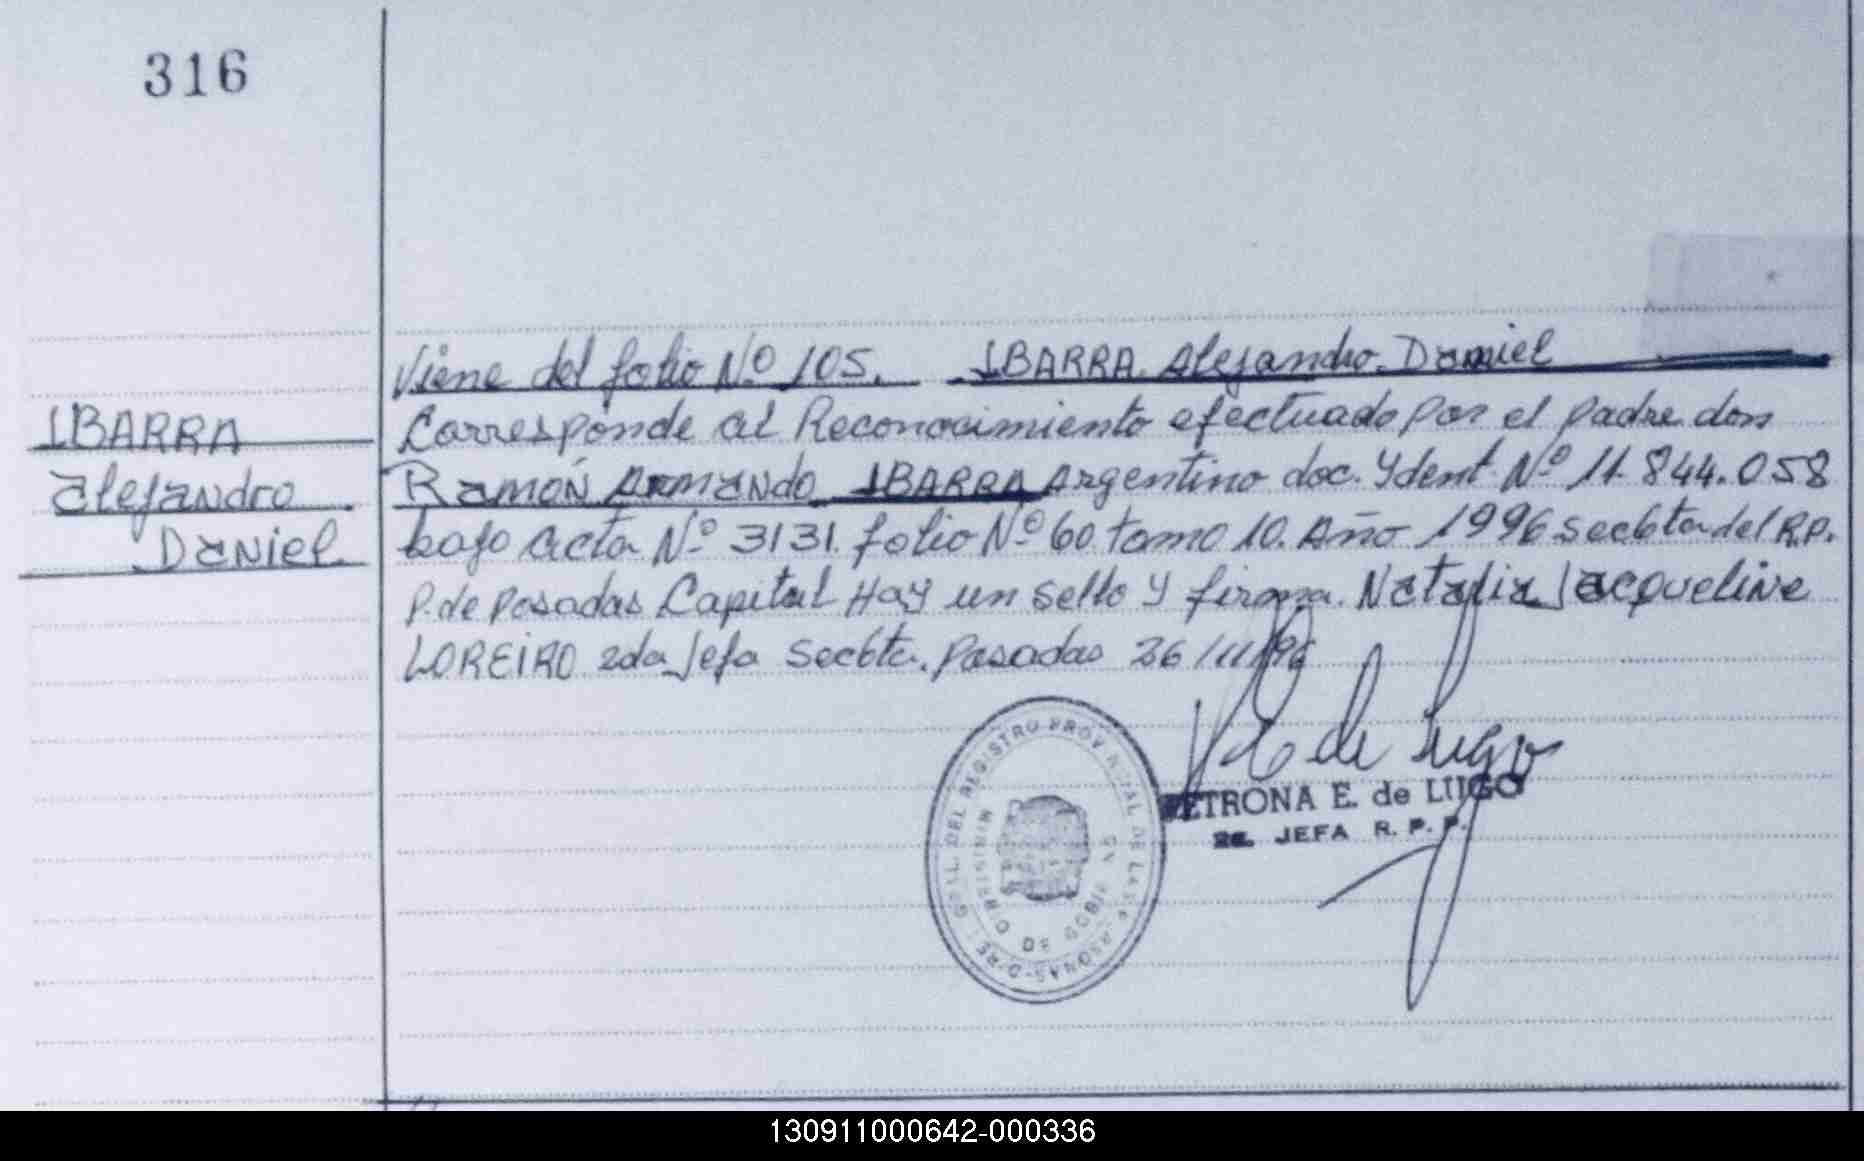 316
Viene del folio Nº 105. IBARRA Alejandro Daniel
IBARRA
Alejandro
Daniel
Corresponde al Reconocimiento efectuado por el padre don
Ramón Armando IBARRA Argentino doc. Ydent Nº 11.844.058
bajo acta Nº 3131 folio Nº 60 tomo 10. Año 1996 Seccbta del R.P.
P. de Posadas Capital Hay un sello y firma. Natalia Jacqueline
LOREIRO 2da Jefa Seccbta. Posadas 26/11/96
E de Lugo
PETRONA E. de LUGO
2a. JEFA R. P. P.
GRAL. DEL REGISTRO PROVINCIAL DE LAS PERSONAS
130911000642-000336